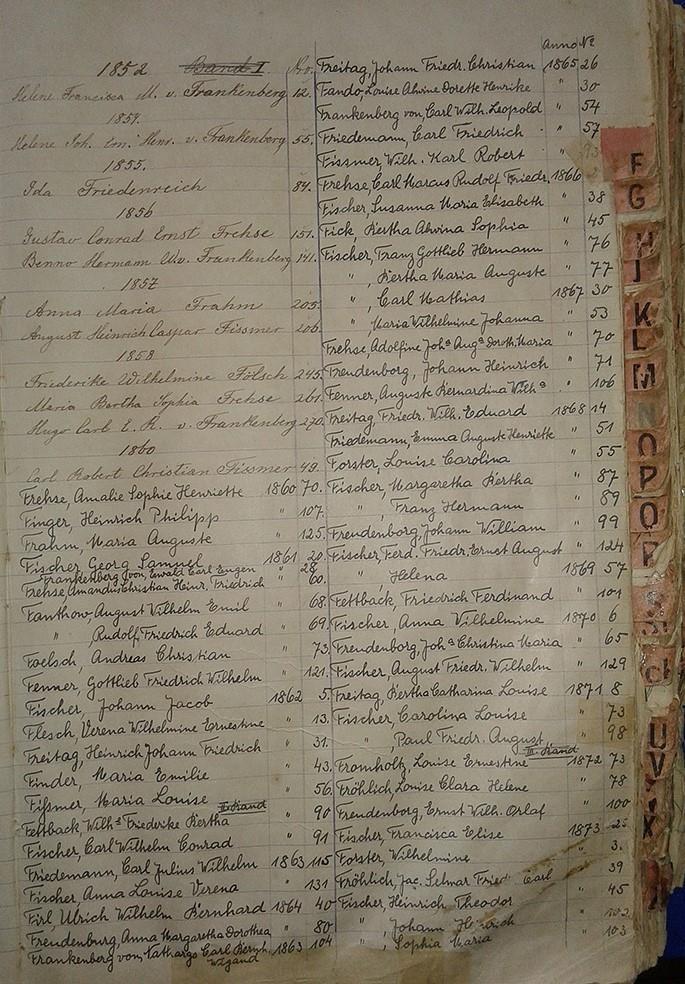 1852 Band I No.
Helene Francisca M. v. Frankenberg 12.
1854.
Helene Joh. Em. Henr. v. Frankenberg 55.
1855.
Ida Friedenreich 84.
1856
Gustav Conrad Ernst Frehse 151.
Benno Hermann W. v. Frankenberg 141.
1857
Anna Maria Frahm 205.
August Heinrich Caspar Fissmer 206.
1858
Friederike Wilhelmine Fölsch 245.
Maria Bertha Sophia Frehse 261.
Hugo Carl E. R. v. Frankenberg 270.
1860
Carl Robert Christian Fissmer 49.
Frehse, Amalie Sophie Henriette 1860 70.
Finger, Heinrich Philipp " 107.
Frahm, Maria Auguste " 125.
Fischer Georg Samuel 1861 20.
Frankenberg von, Ewald Carl Eugen " 28
Frehse, Amandus Christian Heinr. Friedrich " 60.
Fanthow, August Wilhelm Emil " 68.
" , Rudolf Friedrich Eduard " 69.
Foelsch, Andreas Christian " 73.
Fenner, Gottlieb Friedrich Wilhelm " 121.
Fischer, Johann Jacob 1862 5.
Flesch, Verena Wilhelmine Ernestine " 13.
Freitag, Heinrich Johann Friedrich " 31.
Finder, Maria Emilie " 43.
Fißmer, Maria Louise " 56.
II Band
Fettback, Wilh.e Friederike Bertha " 90
Fischer, Carl Wilhelm Conrad " 91
Friedemann, Carl Julius Wilhelm 1863 115
Fischer, Anna Louise Verena " 131
Firl, Ulrich Wilhelm Bernhard 1864 40
Freudenburg, Anna Margaretha Dorothea " 80
Frankenberg von, Carl Bernh. 1863 104
Wigand
Anno No
Freitag, Johann Friedr. Christian 1865 26
Fando, Louise Alwine Dorette Henrike " 30
Frankenberg von, Carl Wilh. Leopold " 54
Friedemann, Carl Friedrich " 57
Fissmer, Wilh. Karl Robert "
Frehse Carl Marcus Rudolf Friedr. 1866
Fischer, Susanna Maria Elisabeth " 38
Fick Bertha Alwina Sophia " 45
Fischer, Franz Gottlieb Hermann " 76
" , Bertha Maria Auguste " 77
" , Carl Mathias 1867 30
" , Maria Wilhelmine Johanna " 53
Frehse, Adolfine Joh.a Aug.a Doroth. Maria " 70
Freudenborg, Johann Heinrich " 71
Fenner, Auguste Bernardina Wilh.a " 106
Freitag, Friedr. Wilh. Eduard 1868 14
Friedemann, Emma Auguste Henriette " 51
Forster, Louise Carolina " 55
Fischer, Margaretha Bertha " 87
" , Franz Hermann " 89
Freudenborg, Johann William " 99
Fischer, Ferd. Friedr. Ernst August " 124
" Helena 1869 57
Fettback, Friedrich Ferdinand " 101
Fischer, Anna Wilhelmine 1870 6
Freudenborg, Joh.a Christina Maria " 65
Fischer, August Friedr. Wilhelm " 129
Freitag, Bertha Catharina Louise 1871 8
Fischer, Carolina Louise " 73
" , Paul Friedr. August " 98
III. Band
Fromholz, Louise Ernestine 1872 73
Fröhlich, Louise Clara Helene " 78
Freudenborg, Ernst Wilh. Orlaf " 100
Fischer, Francisca Elise 1873 25
Forster, Wilhelmine " 3.
Fröhlich, Jac. Selmar Fried Carl " 39
Fischer, Heinrich Theodor " 45
" , Johann Heinrich " 102
" , Sophia Maria " 103
F
G
H
J
K
L
M
N
O
P
Q
U
V
X